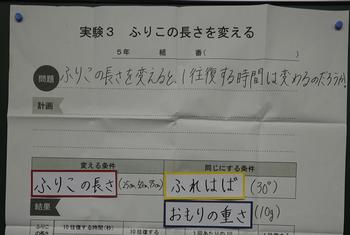 実験3 ふりこの長さを変える
5年 組 番( )
問題 ふりこの長さを変えると、1往復する時間は変わるのだろうか。
計画
変える条件 同じにする条件
ふりこの長さ ふれはば (30°)
結果 おもりの重さ (10g)
10往復する時間(秒)